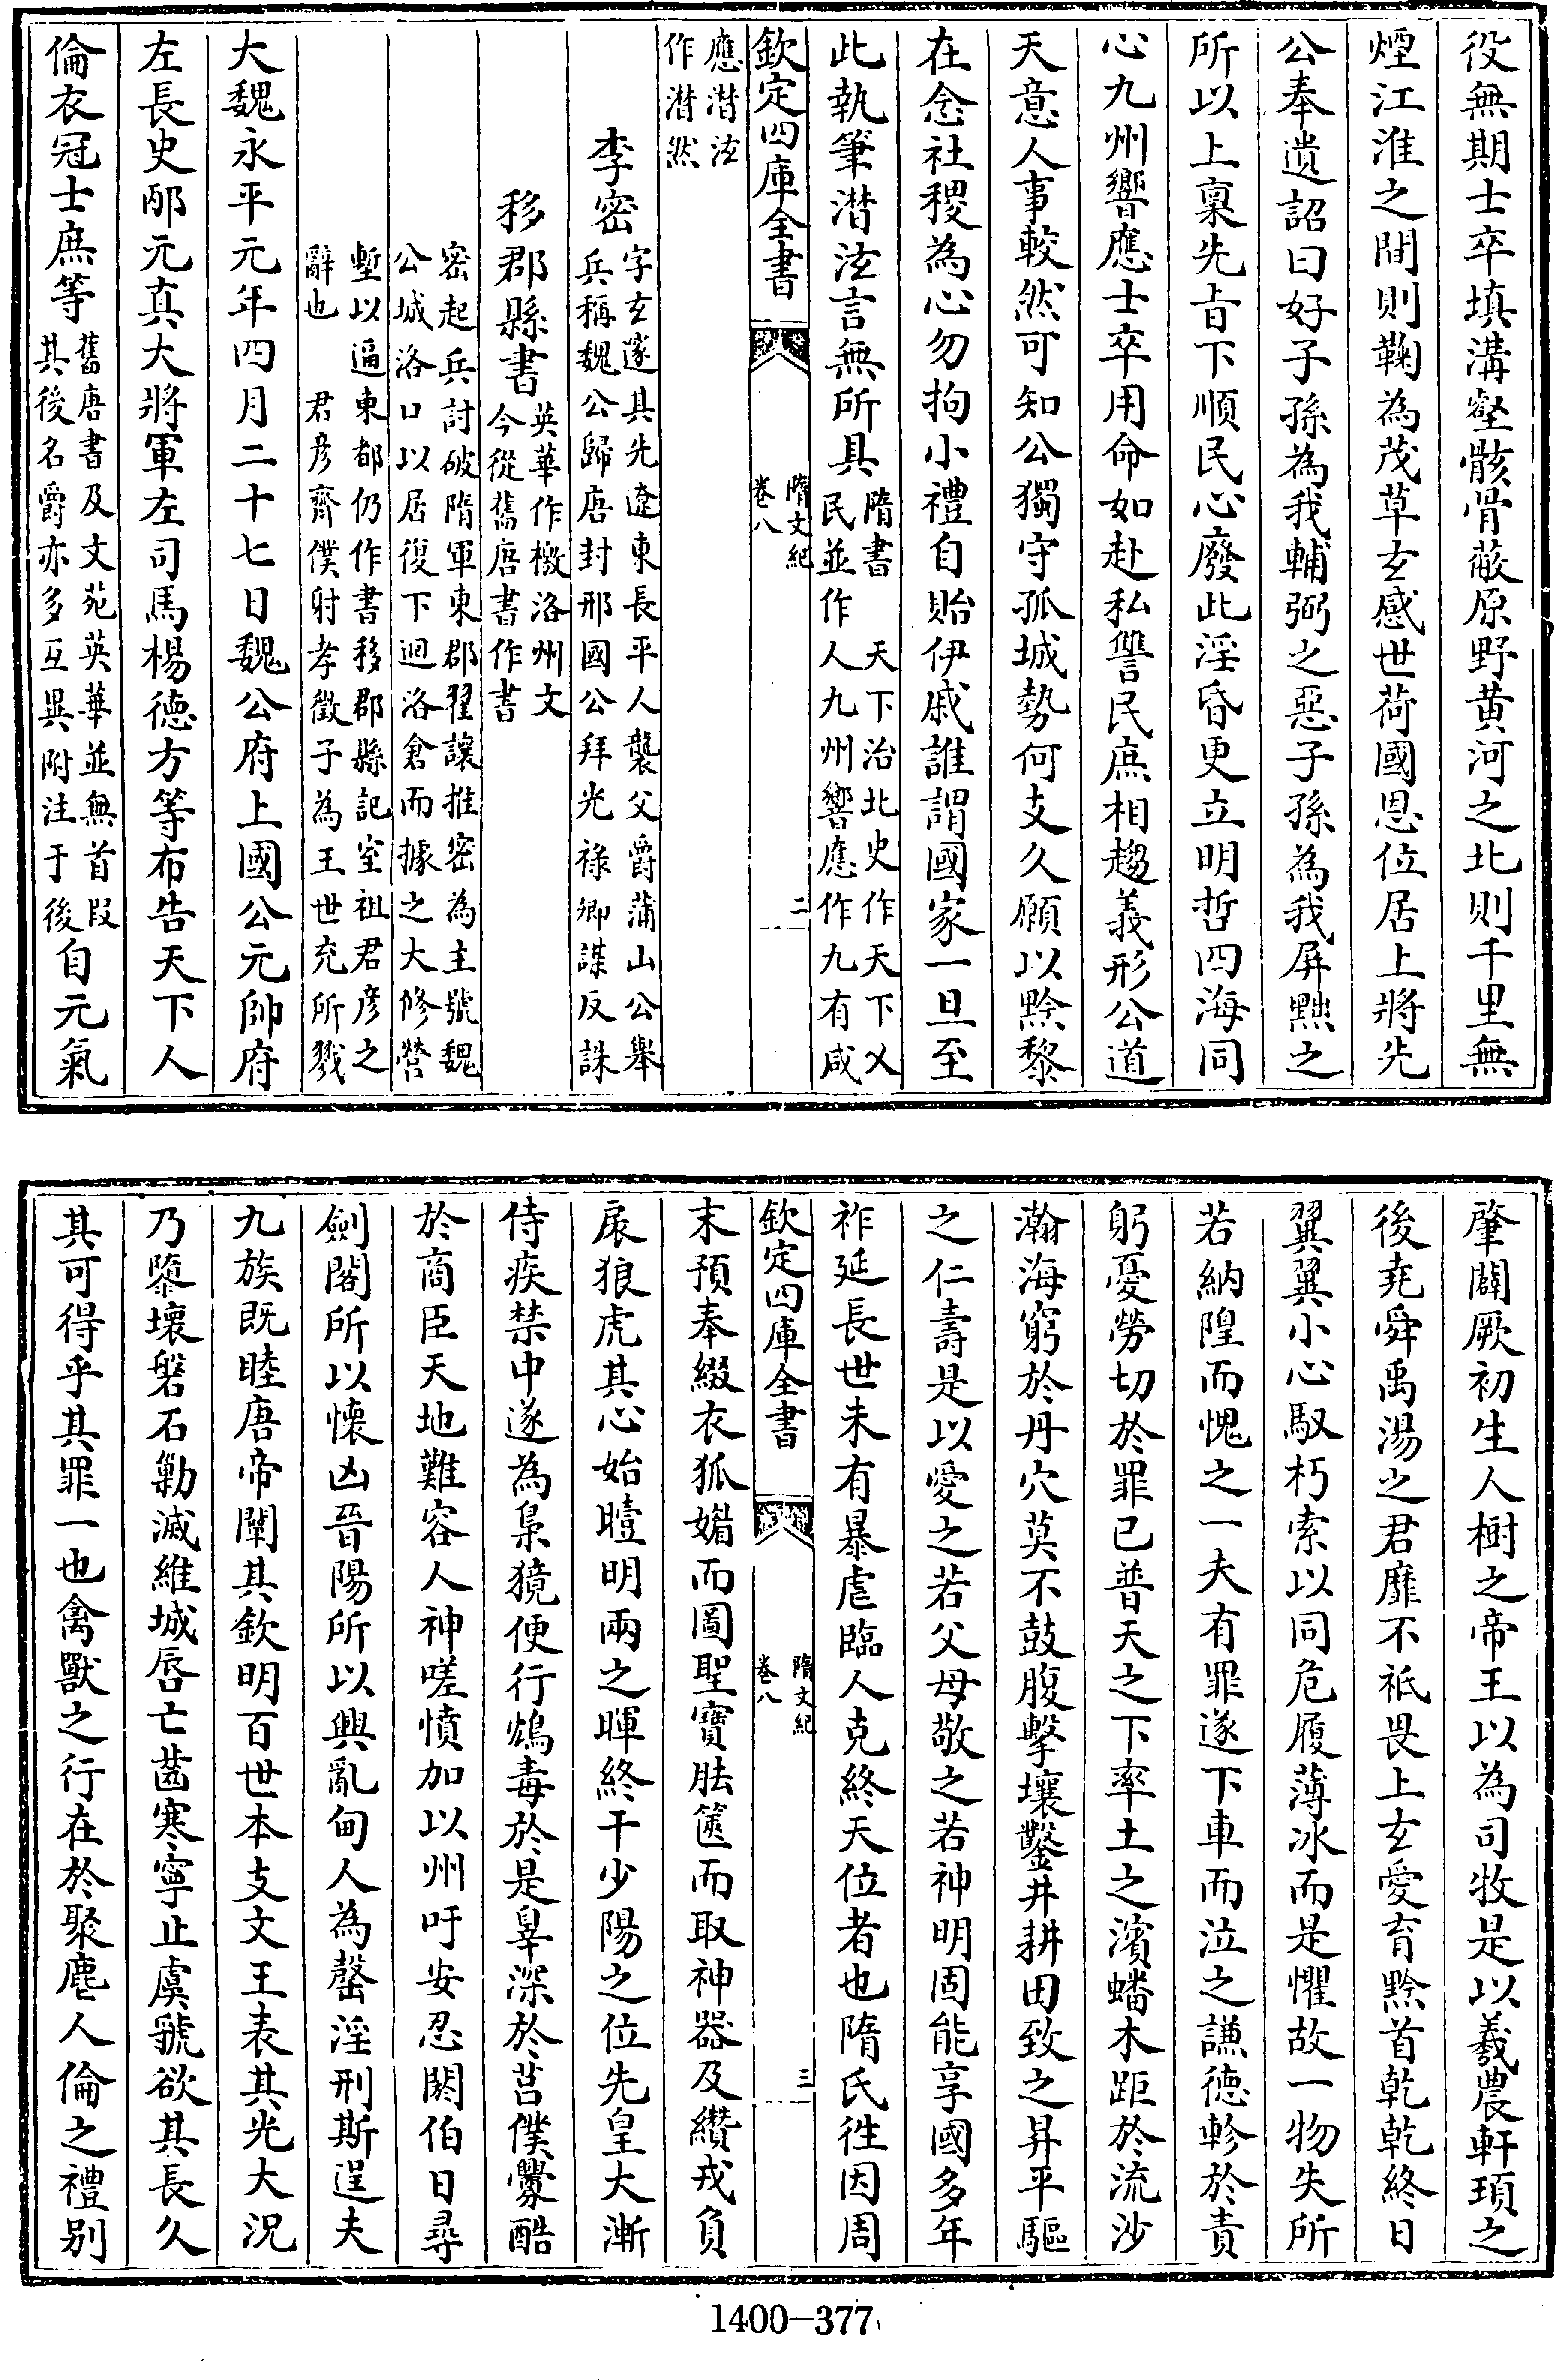 役無期士卒填溝壑骸骨蔽原野黄河之北則千里無
煙江淮之間則鞠為茂草玄感世荷國恩位居上將先
公奉遺詔曰好子孫為我輔弼之惡子孫為我屏黜之
所以上稟先旨下順民心廢此淫昏更立明哲四海同
心九州響應士卒用命如赴私讐民庶相趨義形公道
天意人事較然可知公獨守孤城勢何支久願以黔黎
在念社稷為心勿拘小禮自貽伊戚誰謂國家一旦至
此執筆潜泫言無所具
隋書　天下治北史作天下乂
民並作人九州響應作九有咸
欽定四庫全書
隋文紀
卷八
二
應潜泫
作潜然
李密
字玄邃其先遼東長平人襲父爵蒲山公舉
兵稱魏公歸唐封邢國公拜光祿卿謀反誅
移郡縣書
英華作檄洛州文
今從舊唐書作書
密起兵討破隋軍東郡翟讓推密為主號魏
公城洛口以居復下迴洛倉而據之大修營
塹以逼東都仍作書移郡縣記室祖君彦之
辭也　君彦齊僕射孝徵子為王世充所戮
大魏永平元年四月二十七日魏公府上國公元帥府
左長史邴元真大將軍左司馬楊德方等布告天下人
倫衣冠士庶等
舊唐書及文苑英華並無首段
其後名爵亦多互異附注于後
自元氣
肇闢厥初生人樹之帝王以為司牧是以羲農軒頊之
後堯舜禹湯之君靡不祗畏上玄愛育黔首乾乾終日
翼翼小心馭朽索以同危履薄冰而是懼故一物失所
若納隍而愧之一夫有罪遂下車而泣之謙德軫於責
躬憂勞切於罪已普天之下率土之濱蟠木距於流沙
瀚海窮於丹穴莫不鼓腹擊壤鑿井耕田致之昇平驅
之仁壽是以愛之若父母敬之若神明固能享國多年
祚延長世未有暴虐臨人克終天位者也隋氏徃因周
欽定四庫全書
隋文紀
卷八
三
末預奉綴衣狐媚而圖聖寶胠篋而取神器及纘戎負
扆狼虎其心始曀明兩之暉終干少陽之位先皇大漸
侍疾禁中遂為梟獍便行鴆毒於是辠深於莒僕釁酷
於商臣天地難容人神嗟憤加以州吁安忍閼伯日尋
劍閣所以懐凶晉陽所以興亂甸人為罄淫刑斯逞夫
九族既睦唐帝闡其欽明百世本支文王表其光大況
乃隳壞磐石勦滅維城唇亡齒寒寧止虞虢欲其長久
其可得乎其罪一也禽獸之行在於聚麀人倫之禮别
1400-377